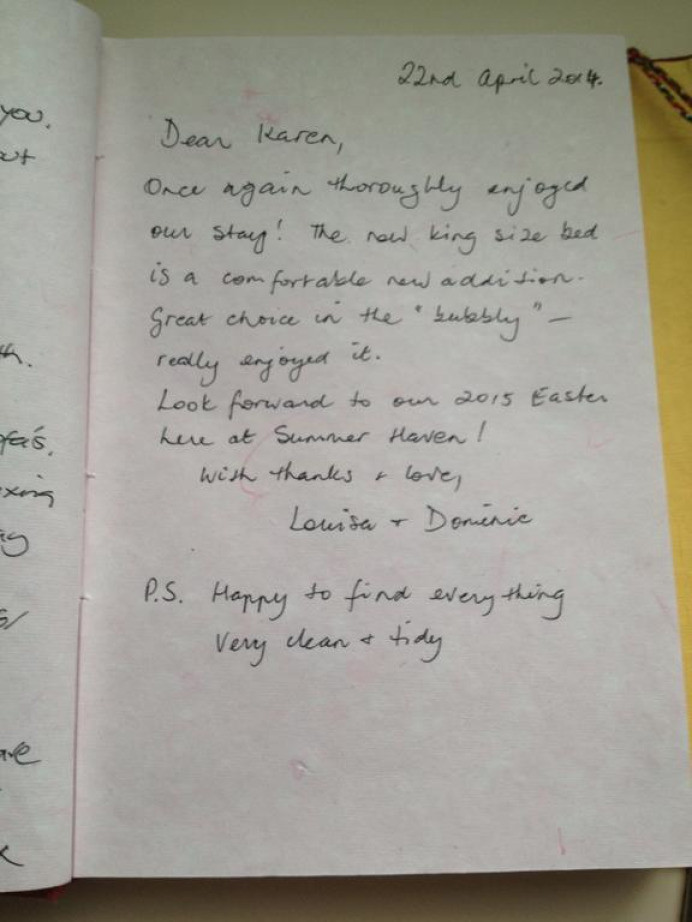 you.
22nd April 2014.
Dear Karen,
Once again thoroughly enjoyed
our stay! The new king size bed
is a comfortable new addition.
Great choice in the "bubbly" –
really enjoyed it.
Look forward to our 2015 Easter
here at Summer Haven!
With thanks + love,
Louisa + Dominic
P.S. Happy to find everything
very clean + tidy